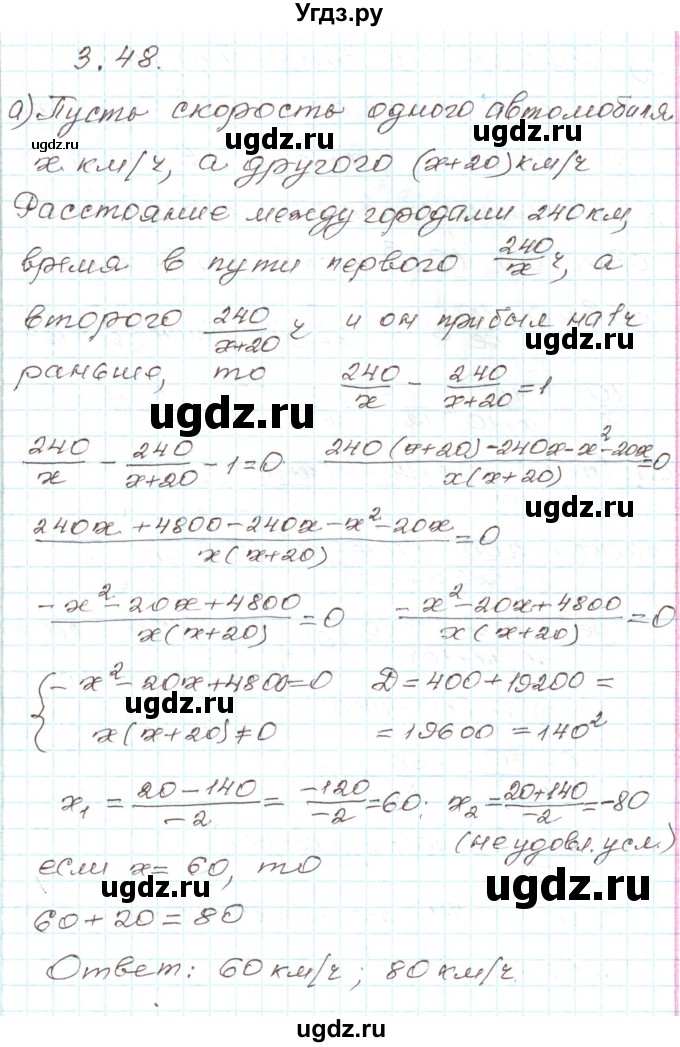 Угдз.ру
3.48.
а) Пусть скорость одного автомобиля
x км/ч, а другого (x+20) км/ч
Расстояние между городами 240 км,
время в пути первого 240/x ч, а
второго 240/(x+20) ч и он прибыл на 1 ч
раньше, то 240/x - 240/(x+20) = 1
240/x - 240/(x+20) - 1 = 0 (240(x+20) - 240x - x² - 20x)/(x(x+20)) = 0
(240x + 4800 - 240x - x² - 20x)/(x(x+20)) = 0
(-x² - 20x + 4800)/(x(x+20)) = 0 (-x² - 20x + 4800)/(x(x+20)) = 0
{ -x² - 20x + 4800 = 0 D = 400 + 19200 =
x(x+20) ≠ 0 = 19600 = 140²
x₁ = (20 - 140)/(-2) = (-120)/(-2) = 60; x₂ = (20 + 140)/(-2) = -80
(не удовл. усл.)
если x = 60, то
60 + 20 = 80
Ответ: 60 км/ч; 80 км/ч.
ugdz.ru
ugdz.ru
ugdz.ru
ugdz.ru
ugdz.ru
ugdz.ru
ugdz.ru
ugdz.ru
ugdz.ru
ugdz.ru
ugdz.ru
ugdz.ru
ugdz.ru